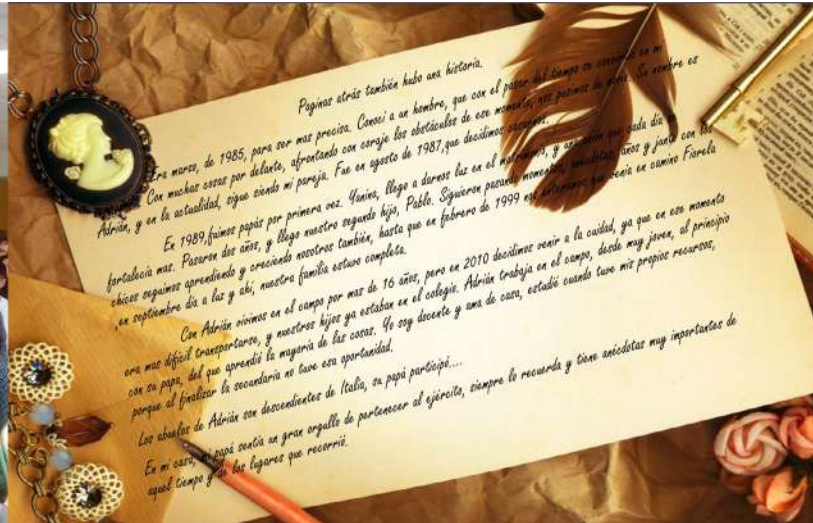 Paginas atrás también hubo una historia.
Era marzo, de 1985, para ser mas precisa. Conoci a un hombre, que con el pasar del tiempo se convirtió en mi
Con muchas cosas por delante, afrontando con coraje los obstáculos de ese momento, nos pusimos de novio. Su nombre es
Adrián, y en la actualidad, sigue siendo mi pareja. Fue en agosto de 1987,que decidimos casarnos.
En 1989,fuimos papás por primera vez. Yanina, llego a darnos luz en el matrimonio, y una unión que cada día
fortalecía mas. Pasaron dos años, y llego nuestro segundo hijo, Pablo. Siguieron pasando momentos, anécdotas, años y junto con los
chicos seguimos aprendiendo y creciendo nosotros también, hasta que en febrero de 1999 nos enteramos que venía en camino Fiorela
,en septiembre dia a luz y ahí, nuestra familia estuvo completa.
Con Adrián vivimos en el campo por mas de 16 años, pero en 2010 decidimos venir a la cuidad, ya que en ese momento
era mas difícil transportarse, y nuestros hijos ya estaban en el colegio. Adrián trabaja en el campo, desde muy joven, al principio
con su papa, del que aprendió la mayoría de las cosas. Yo soy docente y ama de casa, estudié cuando tuve mis propios recursos,
porque al finalizar la secundaria no tuve esa oportunidad.
Los abuelos de Adrián son descendientes de Italia, su papá participó....
En mi casa, mi papá sentía un gran orgullo de pertenecer al ejército, siempre lo recuerda y tiene anécdotas muy importantes de
aquel tiempo y de los lugares que recorrió.